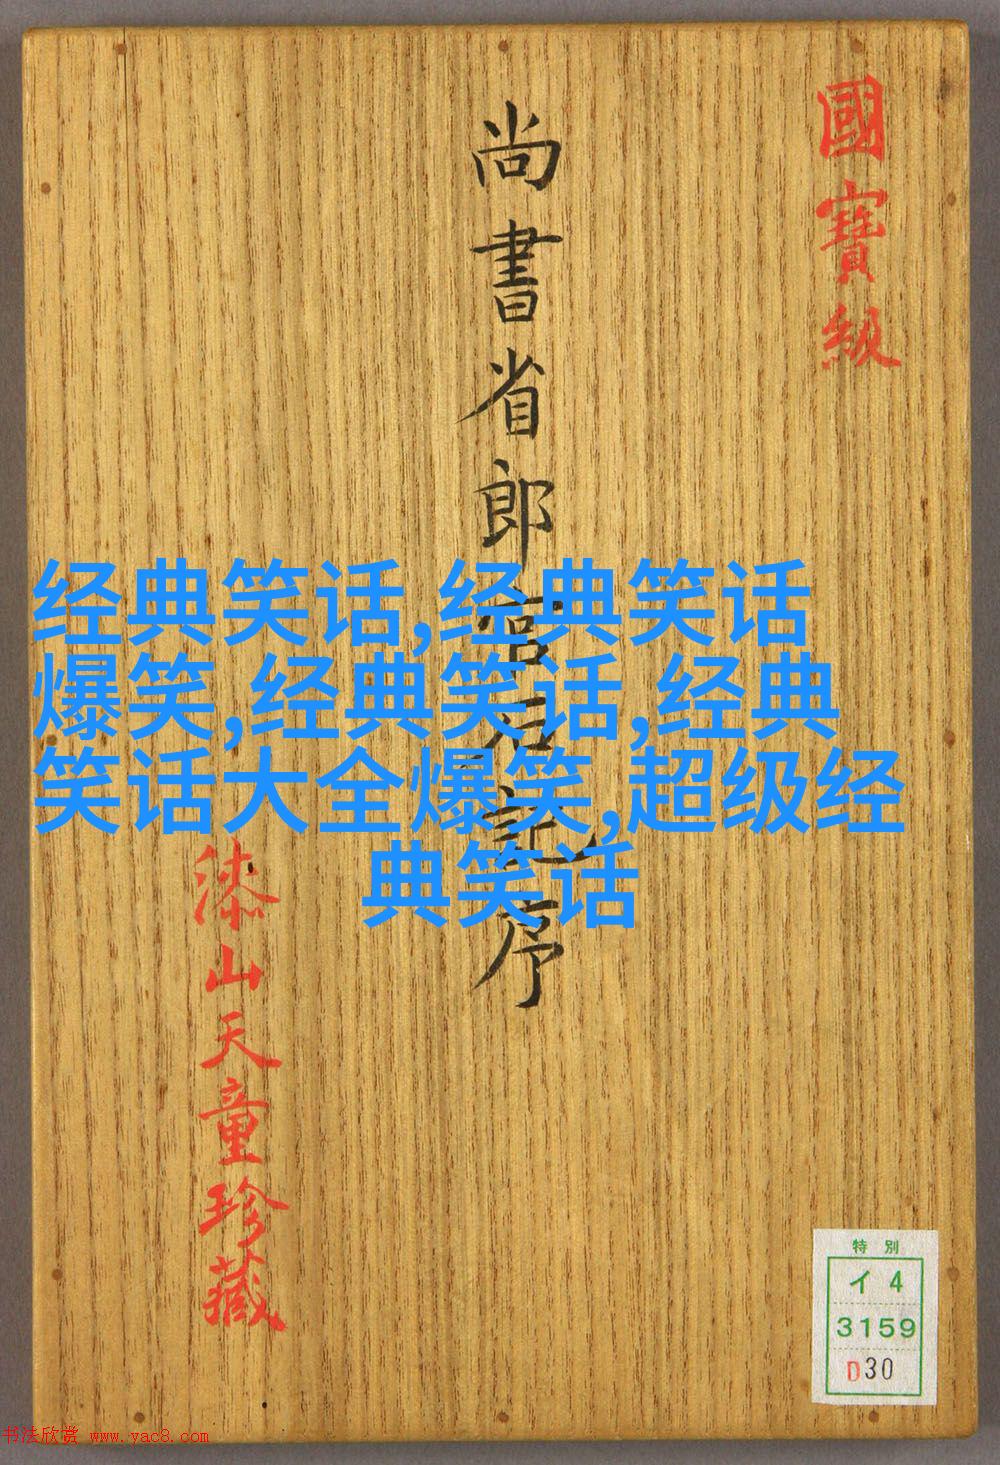 國寶級
尚書省郎官石記序
漆山天童珍藏
经典笑话,经典笑话
爆笑,经典笑话,经典
笑话大全爆笑,超级经
典笑话
特別
イ4
3159
D30
书法欣赏 www.yac8.com